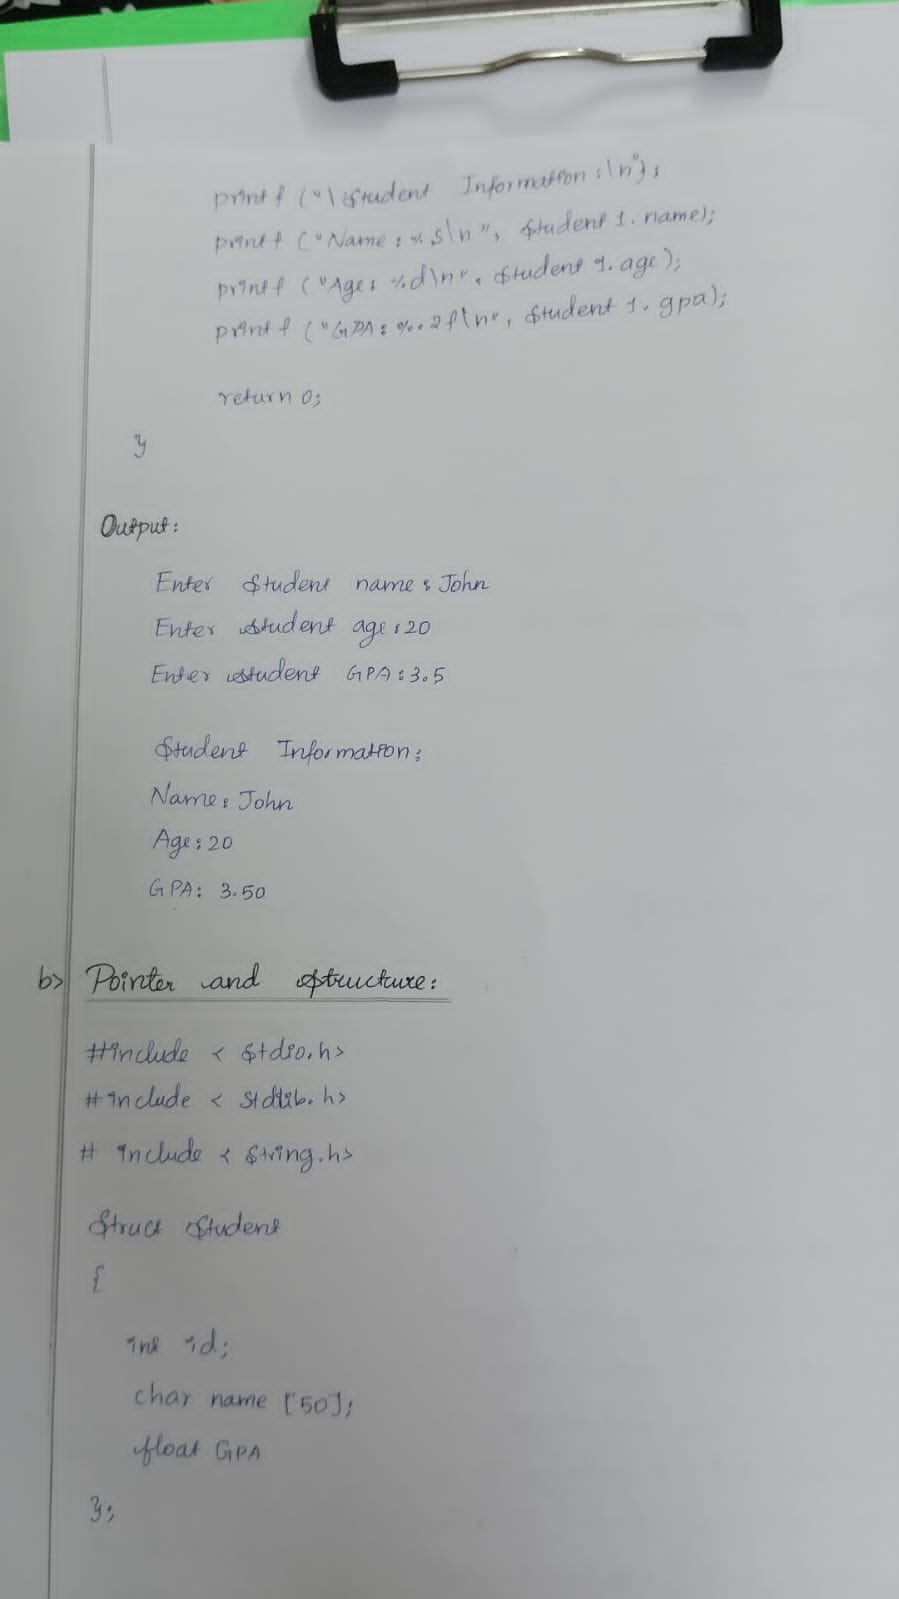 printf ("\Student Information:\n");
printf ("Name: %s\n", Student 1. name);
printf ("Age: %d\n", Student 1. age);
printf ("GPA: %.2f\n", Student 1. gpa);
return 0;
}
Output:
Enter Student name: John
Enter student age: 20
Enter student GPA: 3.5
Student Information:
Name: John
Age: 20
GPA: 3.50
b> Pointer and structure:
#include < Stdio.h>
#include < Stdlib.h>
# include < String.h>
Struct Student
{
int id;
char name [50];
float GPA
};